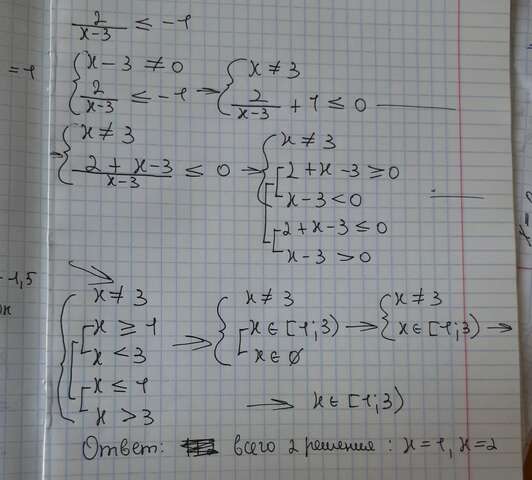 2/(x-3) ≤ -1
= 1
{ x-3 ≠ 0
{ 2/(x-3) ≤ -1 → { x ≠ 3
{ 2/(x-3) + 1 ≤ 0
→ { x ≠ 3
{ (2+x-3)/(x-3) ≤ 0 → { x ≠ 3
[ 2+x-3 ≥ 0
[ x-3 < 0
[ 2+x-3 ≤ 0
[ x-3 > 0
-1,5
{ x ≠ 3
[ x ≥ 1
[ x < 3
[ x ≤ 1
[ x > 3
→ { x ≠ 3
[ x ∈ [1; 3)
[ x ∈ ∅
→ { x ≠ 3
{ x ∈ [1; 3) →
→ x ∈ [1; 3)
Ответ: всего 2 решения: x=1, x=2